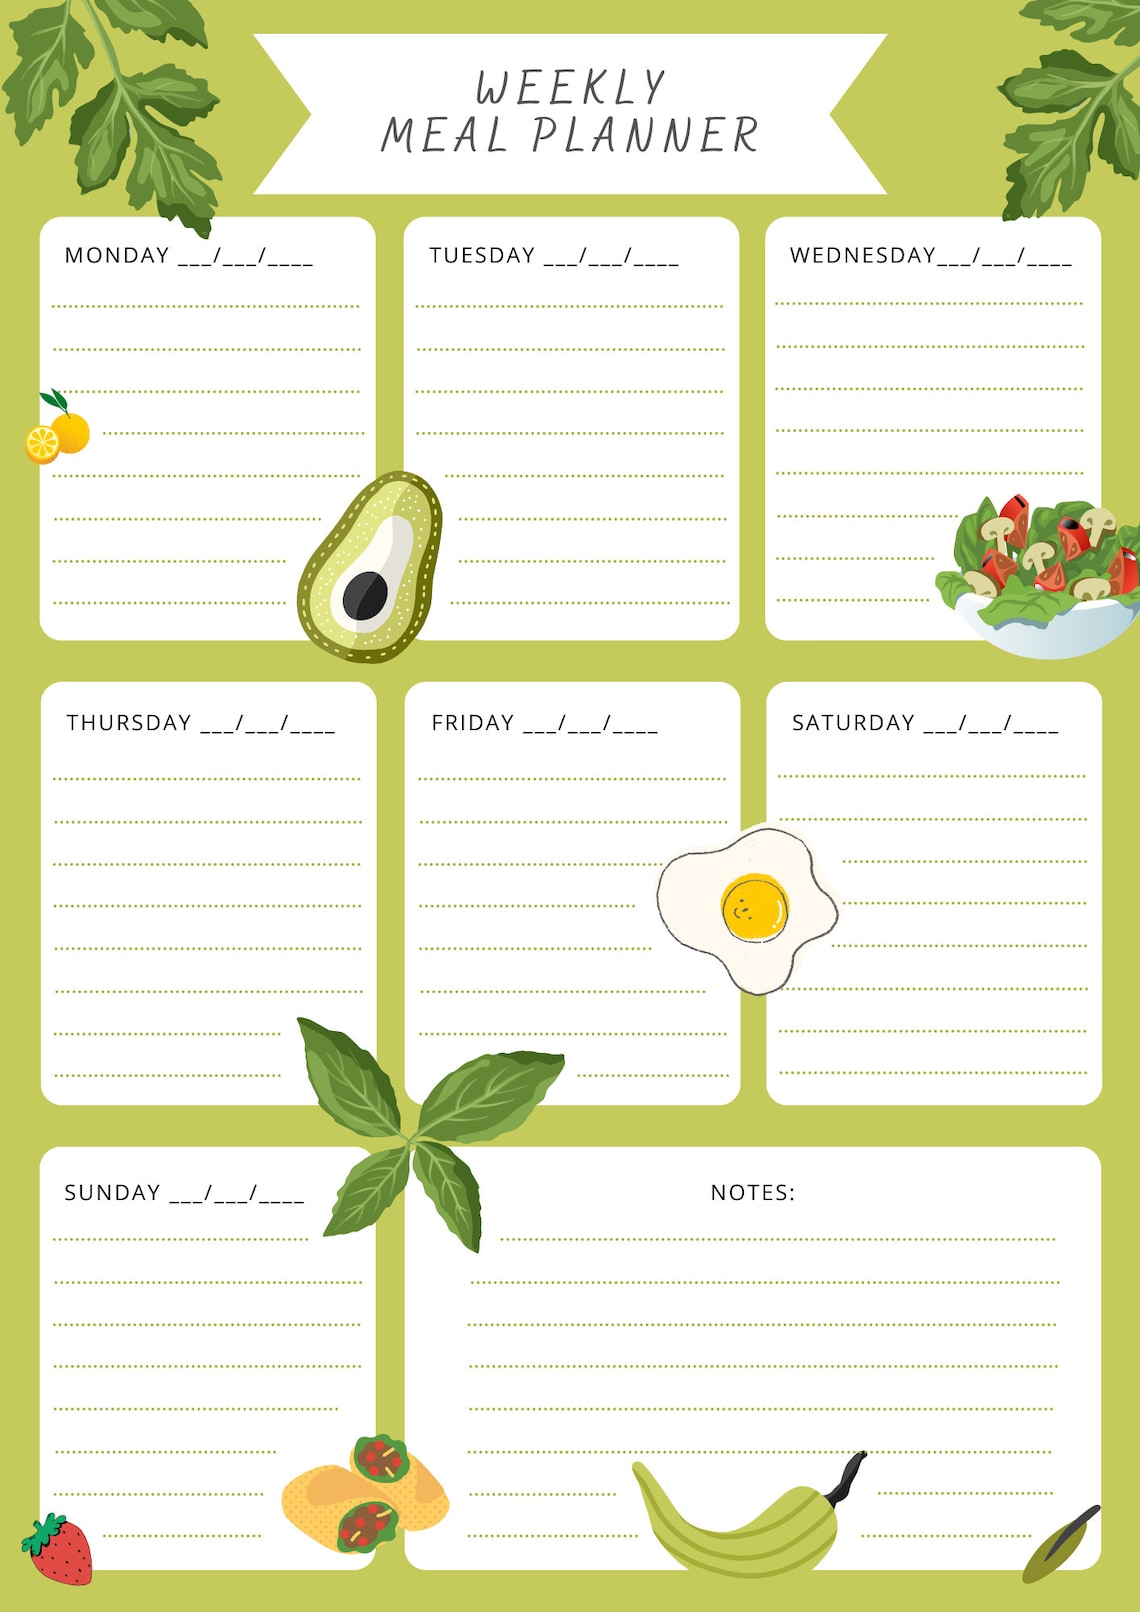 WEEKLY
MEAL PLANNER
MONDAY ___/___/____
TUESDAY ___/___/____
WEDNESDAY___/___/____
THURSDAY ___/___/____
FRIDAY ___/___/____
SATURDAY ___/___/____
SUNDAY ___/___/____
NOTES: